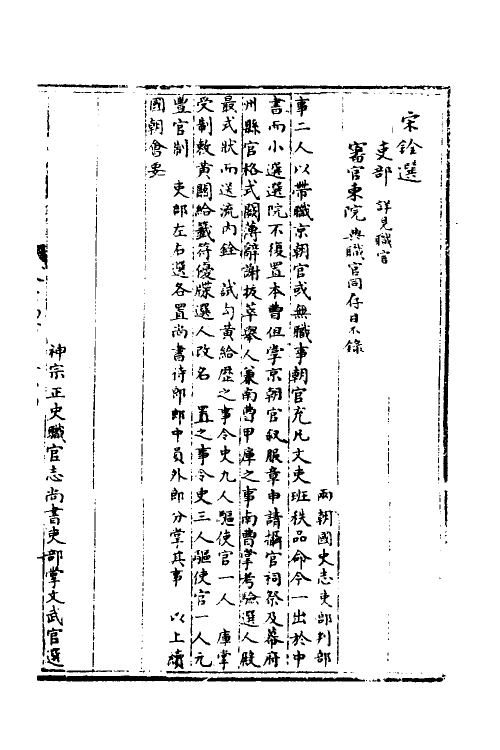 宋銓選
吏部 詳見職官
審官東院 與職官同存目不錄
兩朝國史志吏部判部
事二人以帶職京朝官或無職事朝官充凡文吏班秩品命令一出於中
書而小選選院不復置本曹但掌京朝官叙服章申請攝官祠祭及幕府
州縣官格式闕薄辭謝拔萃舉人兼南曹甲庫之事南曹掌考驗選人殿
最式狀而送流內銓 試勾黃給歷之事令史九人驅使官一人 庫掌
受制敕黃關給籤符優牒選人改名 置之事令史三人驅使官一人元
豐官制 吏部左右選各置尚書侍郎郎中員外郎分掌其事 以上續
國朝會要
神宗正史職官志尚書吏部掌文武官選